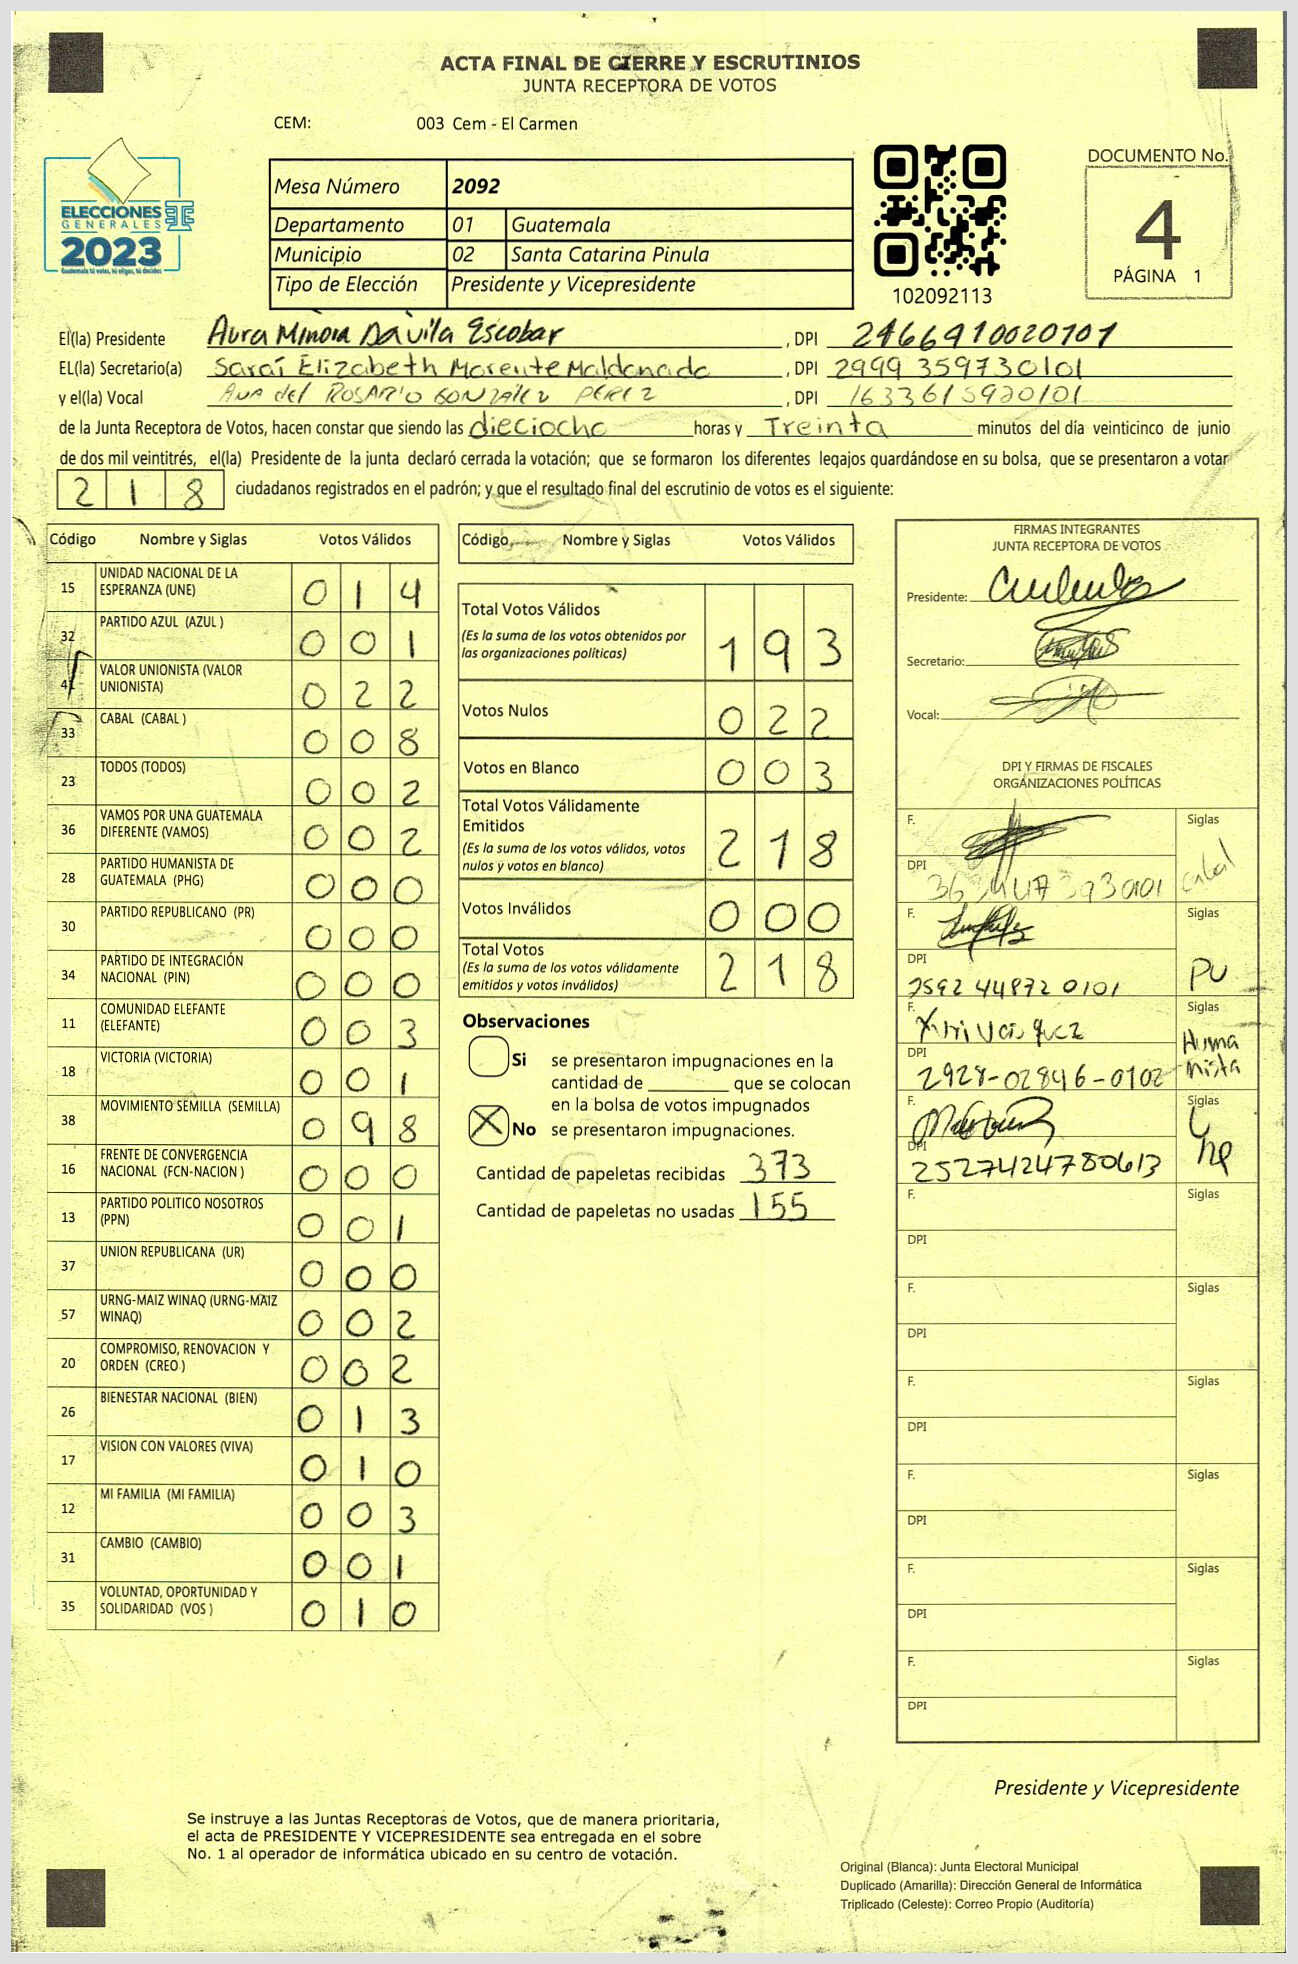 ACTA FINAL DE CIERRE Y ESCRUTINIOS
JUNTA RECEPTORA DE VOTOS
CEM: 003 Cem - El Carmen
ELECCIONES
GENERALES
2023
Guatemala tú votas, tú eliges, tú decides
Mesa Número 2092
Departamento 01 Guatemala
Municipio 02 Santa Catarina Pinula
Tipo de Elección Presidente y Vicepresidente
102092113
DOCUMENTO No.
4
PÁGINA 1
El(la) Presidente Aura Minora Dávila Escobar, DPI 2466910020101
EL(la) Secretario(a) Saraí Elizabeth Morente Maldonado, DPI 2999 359730101
y el(la) Vocal Ana del Rosario González Pérez, DPI 1633615920101
de la Junta Receptora de Votos, hacen constar que siendo las dieciocho horas y Treinta minutos del día veinticinco de junio
de dos mil veintitrés, el(la) Presidente de la junta declaró cerrada la votación; que se formaron los diferentes legajos guardándose en su bolsa, que se presentaron a votar
218 ciudadanos registrados en el padrón; y que el resultado final del escrutinio de votos es el siguiente:
Código Nombre y Siglas Votos Válidos
15 UNIDAD NACIONAL DE LA ESPERANZA (UNE) 014
32 PARTIDO AZUL (AZUL ) 001
41 VALOR UNIONISTA (VALOR UNIONISTA) 022
33 CABAL (CABAL ) 008
23 TODOS (TODOS) 002
36 VAMOS POR UNA GUATEMALA DIFERENTE (VAMOS) 002
28 PARTIDO HUMANISTA DE GUATEMALA (PHG) 000
30 PARTIDO REPUBLICANO (PR) 000
34 PARTIDO DE INTEGRACIÓN NACIONAL (PIN) 000
11 COMUNIDAD ELEFANTE (ELEFANTE) 003
18 VICTORIA (VICTORIA) 001
38 MOVIMIENTO SEMILLA (SEMILLA) 098
16 FRENTE DE CONVERGENCIA NACIONAL (FCN-NACION ) 000
13 PARTIDO POLITICO NOSOTROS (PPN) 001
37 UNION REPUBLICANA (UR) 000
57 URNG-MAIZ WINAQ (URNG-MAIZ WINAQ) 002
20 COMPROMISO, RENOVACION Y ORDEN (CREO ) 002
26 BIENESTAR NACIONAL (BIEN) 013
17 VISION CON VALORES (VIVA) 010
12 MI FAMILIA (MI FAMILIA) 003
31 CAMBIO (CAMBIO) 001
35 VOLUNTAD, OPORTUNIDAD Y SOLIDARIDAD (VOS ) 010
Código Nombre y Siglas Votos Válidos
Total Votos Válidos 193
(Es la suma de los votos obtenidos por
las organizaciones políticas)
Votos Nulos 022
Votos en Blanco 003
Total Votos Válidamente
Emitidos 218
(Es la suma de los votos válidos, votos
nulos y votos en blanco)
Votos Inválidos 000
Total Votos 218
(Es la suma de los votos válidamente
emitidos y votos inválidos)
Observaciones
Si se presentaron impugnaciones en la
cantidad de ________ que se colocan
en la bolsa de votos impugnados
X No se presentaron impugnaciones.
Cantidad de papeletas recibidas 373
Cantidad de papeletas no usadas 155
FIRMAS INTEGRANTES
JUNTA RECEPTORA DE VOTOS
Presidente:
Secretario:
Vocal:
DPI Y FIRMAS DE FISCALES
ORGANIZACIONES POLÍTICAS
F. Siglas
DPI Cabal
F. Siglas
DPI 2592 44872 0101 PU
F. Siglas
DPI 2928-02846-0102 Humanista
F. Siglas
DPI 2527424780613 Une
F. Siglas
DPI
F. Siglas
DPI
F. Siglas
DPI
F. Siglas
DPI
F. Siglas
DPI
F. Siglas
DPI
Presidente y Vicepresidente
Se instruye a las Juntas Receptoras de Votos, que de manera prioritaria,
el acta de PRESIDENTE Y VICEPRESIDENTE sea entregada en el sobre
No. 1 al operador de informática ubicado en su centro de votación.
Original (Blanca): Junta Electoral Municipal
Duplicado (Amarilla): Dirección General de Informática
Triplicado (Celeste): Correo Propio (Auditoría)